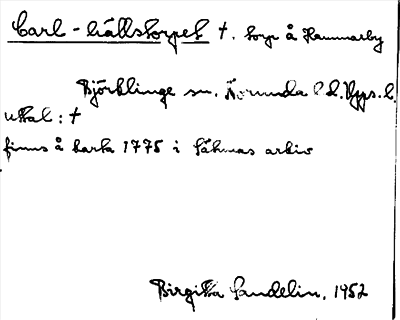 Carl-hällstorpet †. torp å Hammarby
Björklinge sn. Norunda hd. Upps. l.
uttal: †
finns å karta 1775 i Säbmas arkiv
Birgitta Sandelin. 1952